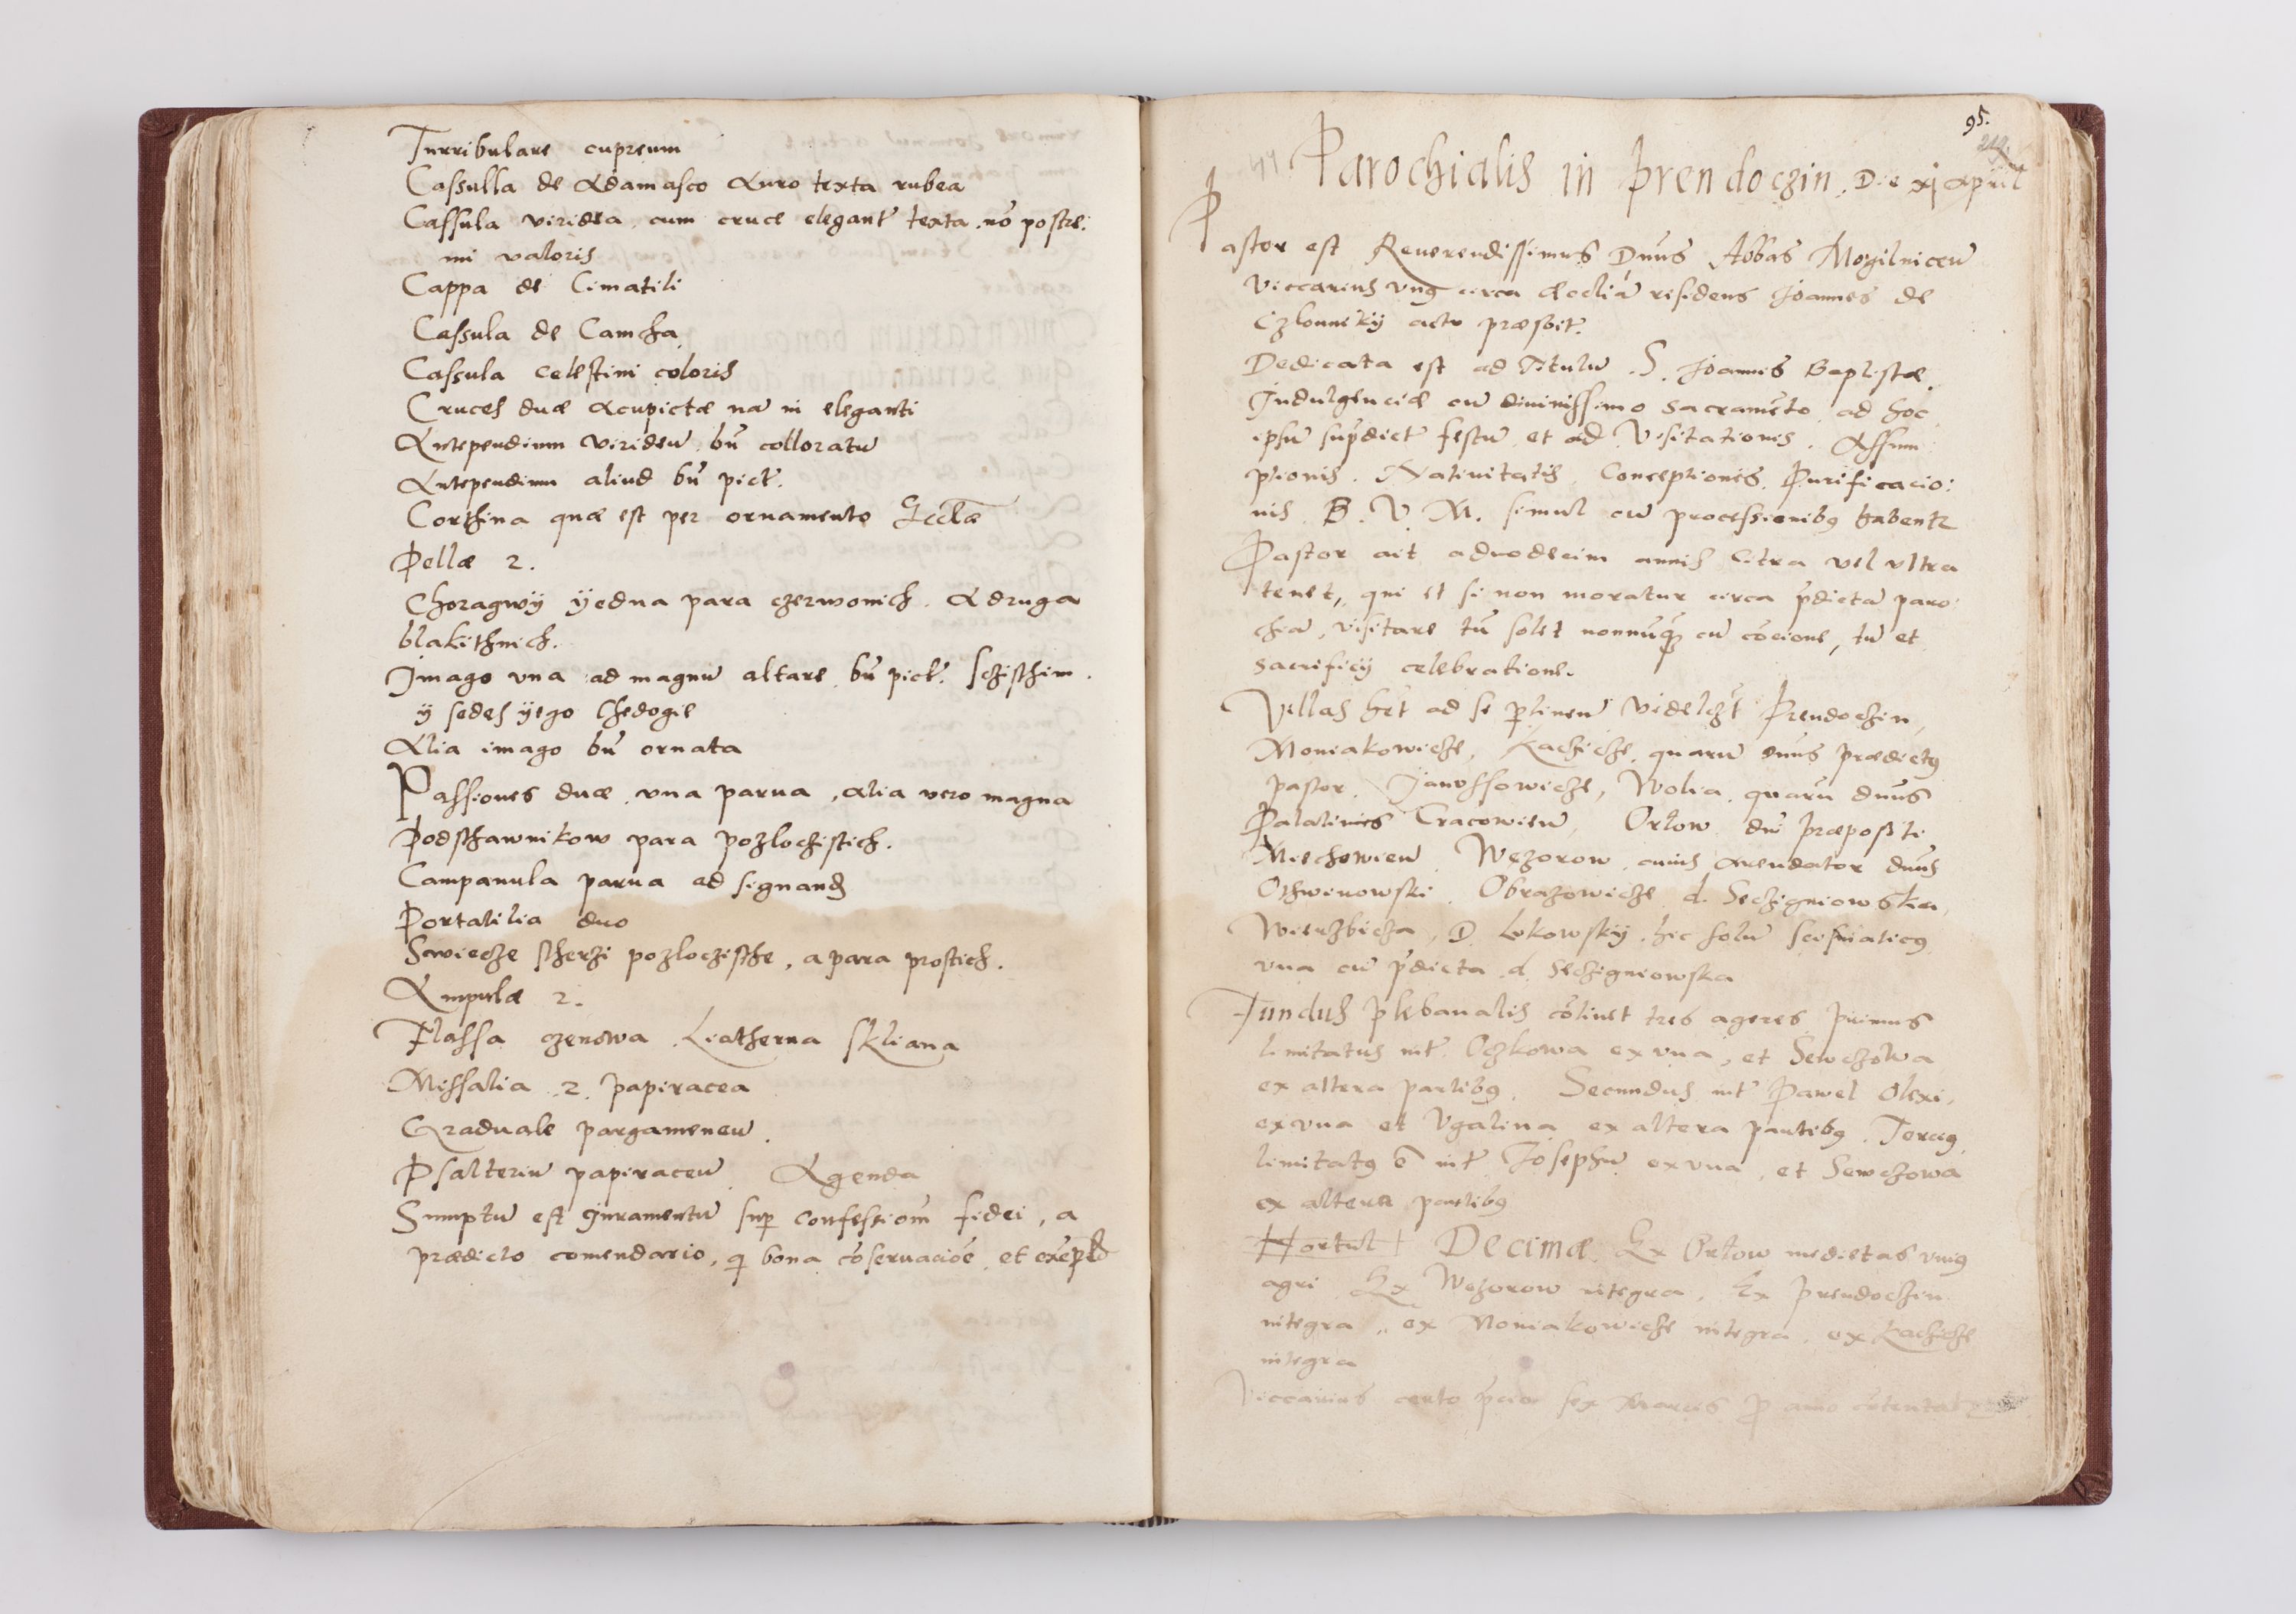 Turribulare cupreum
Cassulla de Adamasco Auro texta rubea
Cassula viridea cum cruce elegant̃ texta nō postre:
mi valoris
Cappa de Cimatili
Cassula de Camcha
Cassula celestini coloris
Cruces duæ acupictæ na͠ ni eleganti
Antependium virideu͠ bn͠ colloratu͠
Antependium aliud bn͠ pict̃.
Corthina quæ est per ornamento Eccl̃æ
Pellæ 2.
Choragwÿ ÿedna para czerwonich. A druga
blakithnich.
Imago vna ad magnu͠ altare bn͠ pict̃. schisthim.
ÿ sedes ÿego Chedogie
Alia imago bn͠ ornata
Passiones duæ, vna parua, alia vero magna
Podsthawnikow para pozloczistich.
Campanula parua ad signand
Portatilia duo
Swiecze stherzi pozloczisthe, a para prostich.
Ampulæ 2.
Flassa czenowa Liatherna skliana
Missalia 2. papiracea
Graduale pargameneu͠.
Psalteriu͠ papiraceu͠ Agenda
Sumptu͠ est Juramentu͠ sup confessiom̃ fidei, a
prædicto comendario, q bona cōseruaciōe et exēplo
95.
219.
Parochialis in Prendoczin. Die xj April
Pastor est Reuerendissimus Dn͠us Abbas Mogilniceu͠
Viccarius vnꝰ circa æccliā residens Joannes de
Czlonniky actu præsbit̃.
Dedicata est ad Titulu͠ S. Joannis Baptistæ.
Indulgenciæ cu͠ diuinissimo sacramēto ad hoc
ipsu͠ sup̃dict̃ festu͠ et ad Visitationis. Assum
ptionis. Natiuitatis. Conceptiones. Purificacio:
nis B. V. M. simul cu͠ processionibꝰ habentr
Pastor ait aduodecim annis citra vel vltra
tenet, qui et si non moratur circa p̃dicta͠ paro
chia͠, visitare tn͠ solet nonnu͠q̃ cu͠ cōcione, tu͠ et
sacrificÿ celebratione.
Villas h̃et ad se ꝑtinen̄ videlczt̃ Prendoczin,
Moniakowicze, Kaczicze, quaru͠ dn͠us prædictꝰ
pastor. Janussowicze, Wolia, quaru͠ dn͠us
Palatinus Cracowien̄, Orlow dn͠i præpositi
Miechowien̄ Wezorow cuius arendator dn͠us
Othwinowski. Obrazowicze d. Seczigniowska,
Wierzbicza, D. Lukowskÿ, hic solu͠ scismaticꝰ
vna cu͠ p̃dicta d. Seczigniowska
Fundus plebanalis cōtinet tres ageres. Primus
limitatus int̃ Oczkowa ex vna, et Sewczowa
ex altera partibꝰ. Secundus int̃ Pawel Olexi,
ex vna et Vgalina ex altera partibꝰ. Terciꝰ
limitatꝰ ē int̃ Josephu͠ ex vna, et Sewczowa
ex altera partibꝰ
Hortul Decimæ. Ex Orlow medietas vniꝰ
agri. Ex Wezorow integra. Ex Prendoczin
integra, ex Moniakowicze integra, ex Kaczicze
integra
Viccarius certo p̃cio sex Marcis ꝓ anno cōtentatr